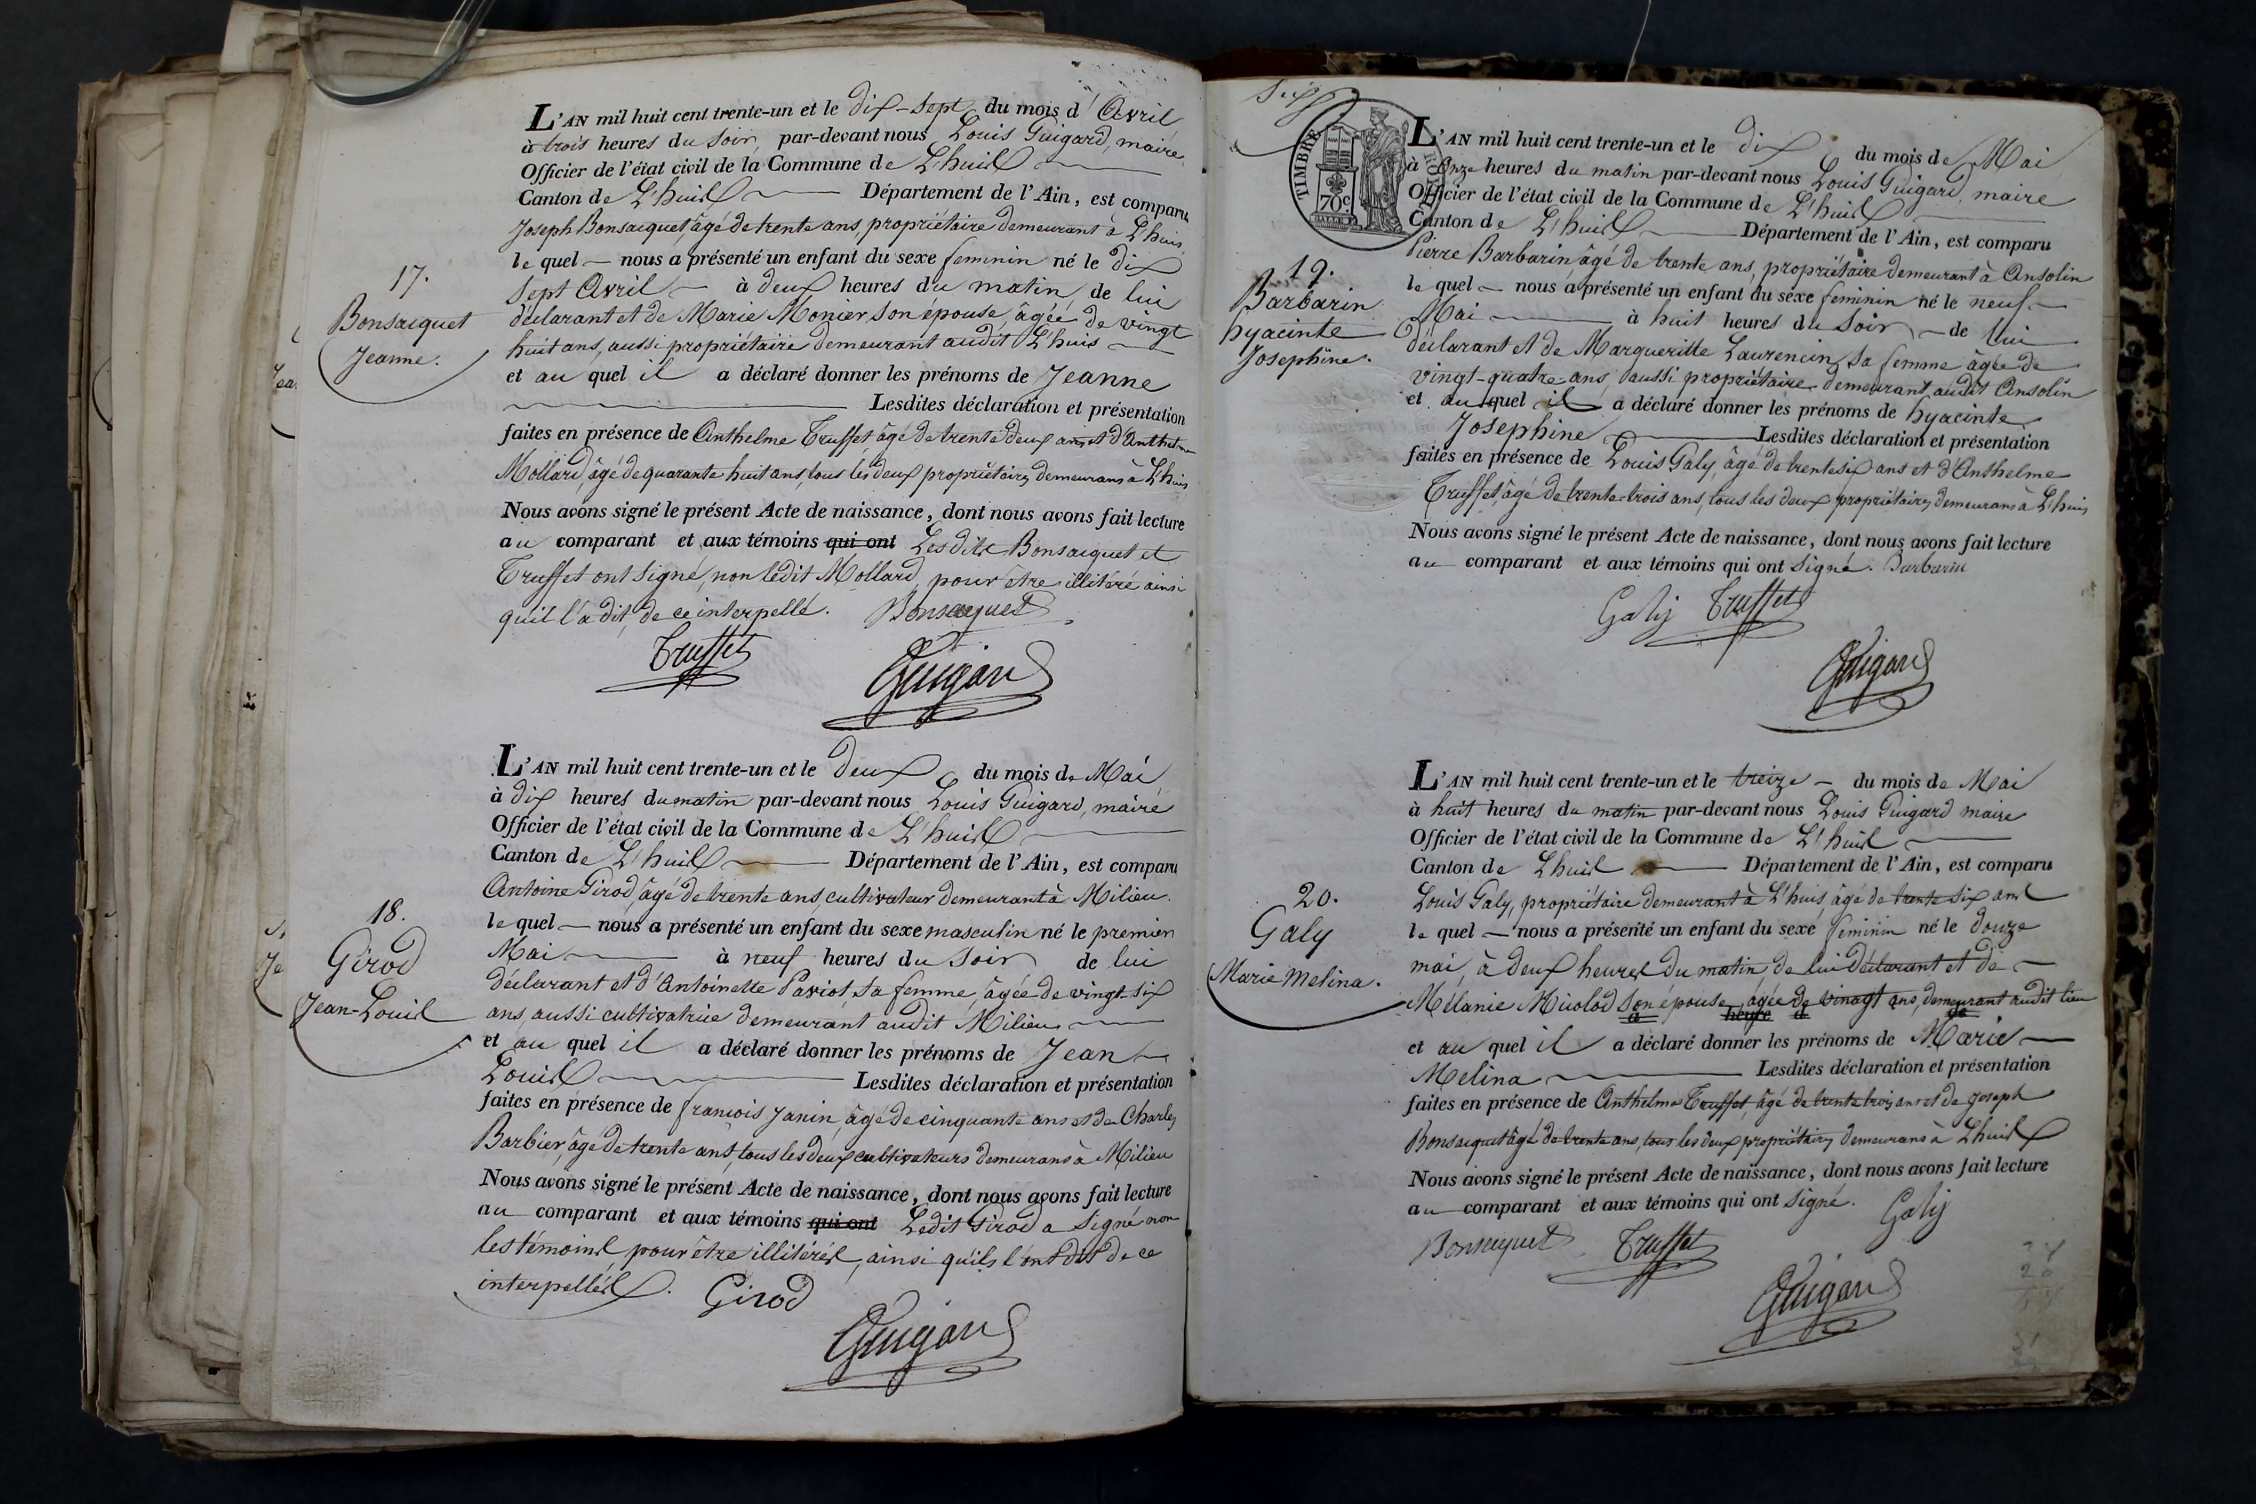 L'AN mil huit cent trente-un et le dix-sept du mois d'Avril
à trois heures du soir, par-devant nous Louis Guigard, maire
Officier de l'état civil de la Commune de L'huis
Canton de L'huis Département de l'Ain, est comparu
Joseph Bonsacquet, âgé de trente ans, propriétaire demeurant à L'huis
le quel nous a présenté un enfant du sexe feminin né le dix
17.
sept Avril à deux heures du matin de lui
Bonsacquet
déclarant et de Marie Monier son épouse âgée de vingt
Jeanne.
huit ans, aussi propriétaire demeurant audit L'huis
et au quel il a déclaré donner les prénoms de Jeanne
Lesdites déclaration et présentation
faites en présence de Anthelme Truffet âgé de trente deux ans et d'Anthelme
Mollard, âgé de quarante huit ans, tous les deux propriétaires demeurans à L'huis
Nous avons signé le présent Acte de naissance, dont nous avons fait lecture
au comparant et aux témoins qui ont Lesdits Bonsacquet et
Truffet ont signé, non ledit Mollard, pour être illitéré ainsi
quil l'a dit, de ce interpellé. Bonsacquet
Truffet
Guigard
L'AN mil huit cent trente-un et le deux du mois de Mai
à dix heures du matin par-devant nous Louis Guigard, maire
Officier de l'état civil de la Commune de L'huis
Canton de L'huis Département de l'Ain, est comparu
Antoine Girod, âgé de trente ans, cultivateur demeurant à Milieu
18.
le quel nous a présenté un enfant du sexe masculin né le premier
Girod
Mai à neuf heures du soir de lui
Jean-Louis
déclarant et d'Antoinette Paviot, sa femme, âgée de vingt-six
ans, aussi cultivatrice demeurant audit Milieu
et au quel il a déclaré donner les prénoms de Jean
Louis Lesdites déclaration et présentation
faites en présence de francois Janin, âgé de cinquante ans et de Charles
Barbier, âgé de trente ans, tous les deux cultivateurs demeurans à Milieu
Nous avons signé le présent Acte de naissance, dont nous avons fait lecture
au comparant et aux témoins qui ont Ledit Girod a signé non
les témoins pour être illitérés, ainsi qu'ils l'ont dit de ce
interpellés. Girod
Guigard
TIMBRE
70c
L'AN mil huit cent trente-un et le dix du mois de Mai
à onze heures du matin par-devant nous Louis Guigard, maire
Officier de l'état civil de la Commune de L'huis
Canton de L'huis Département de l'Ain, est comparu
Pierre Barbarin, âgé de trente ans, propriétaire demeurant à Ansolin
19.
le quel nous a présenté un enfant du sexe feminin né le neuf
Barbarin
Mai à huit heures du soir de lui
hyacinte
Josephine.
déclarant et de Margueritte Laurencin, sa femme âgée de
vingt-quatre ans, aussi propriétaire demeurant audit Ansolin
et au quel il a déclaré donner les prénoms de hyacinte
Josephine Lesdites déclaration et présentation
faites en présence de Louis Galy, âgé de trente six ans et d'Anthelme
Truffet, âgé de trente-trois ans, tous les deux propriétaires demeurans à L'huis
Nous avons signé le présent Acte de naissance, dont nous avons fait lecture
au comparant et aux témoins qui ont signé. Barbarin
Galy Truffet
Guigard
L'AN mil huit cent trente-un et le treize du mois de Mai
à huit heures du matin par-devant nous Louis Guigard maire
Officier de l'état civil de la Commune de L'huis
Canton de L'huis Département de l'Ain, est comparu
20.
Louis Galy, propriétaire demeurant à L'huis, âgé de trente six ans
Galy
le quel nous a présenté un enfant du sexe feminin né le douze
Marie Melina.
mai, à deux heures du matin de lui déclarant et de
Mélanie Micolod son épouse, âgée de vinagt ans, demeurant audit lieu
à heure d de
et au quel il a déclaré donner les prénoms de Marie
Melina Lesdites déclaration et présentation
faites en présence de Anthelme Truffet, âgé de trente trois ans et de Joseph
Bonsacquet âgé de trente ans, tous les deux propriétaires demeurans à L'huis
Nous avons signé le présent Acte de naissance, dont nous avons fait lecture
au comparant et aux témoins qui ont signé. Galy
Bonsacquet Truffet
Guigard